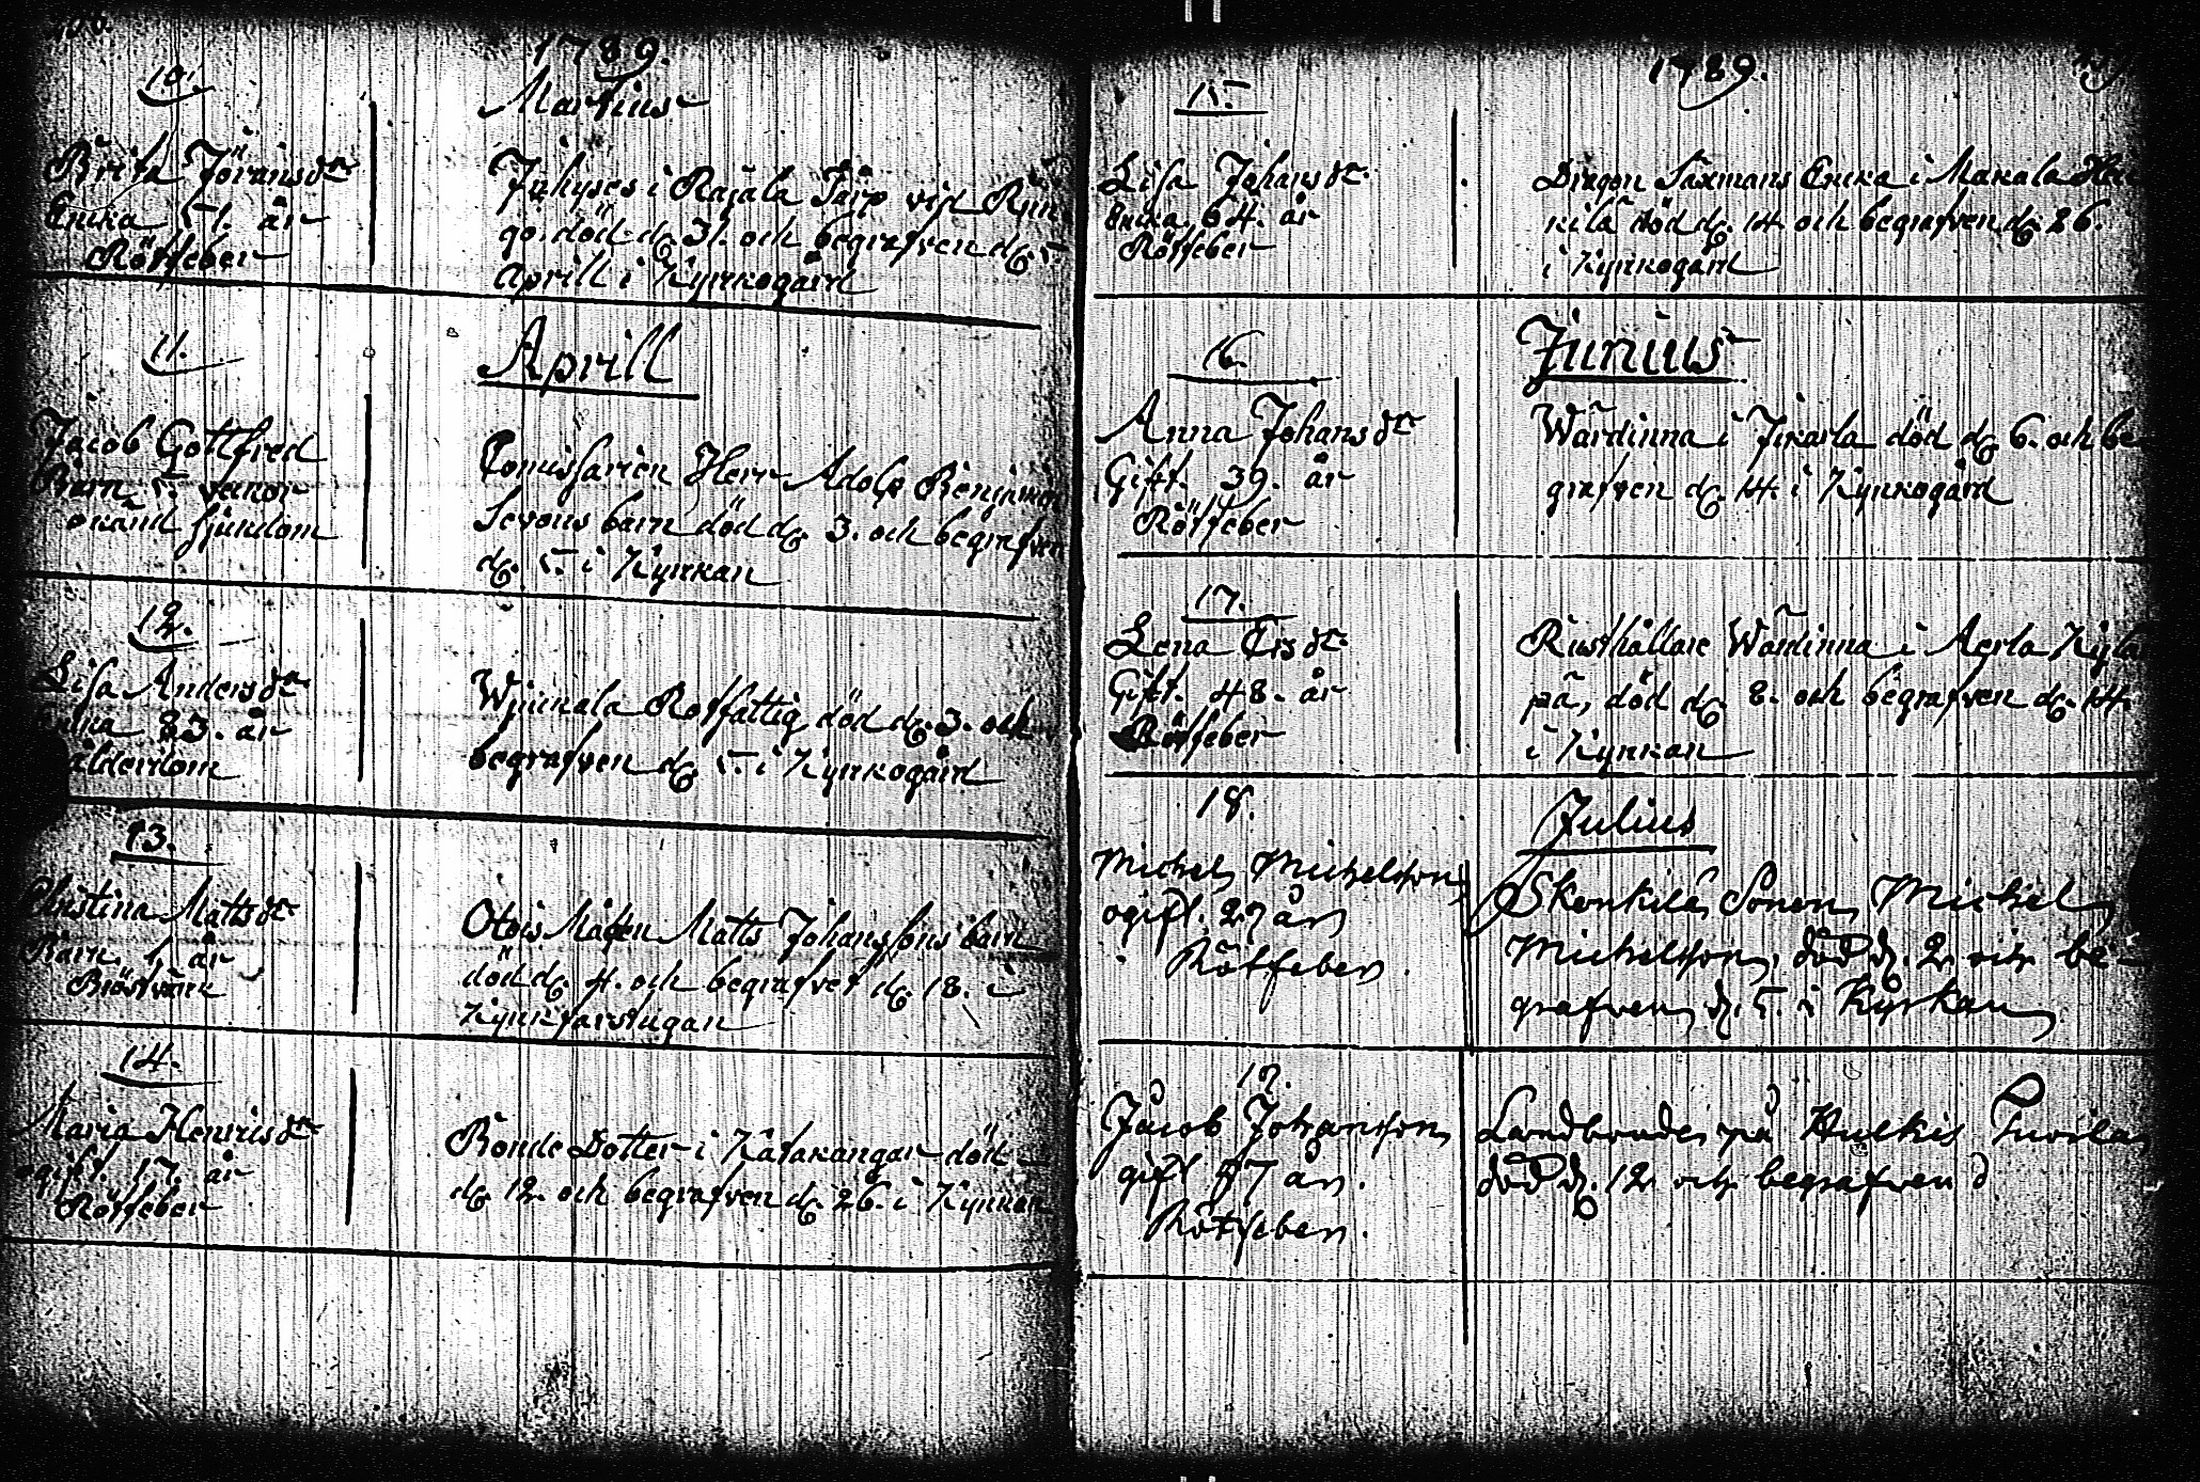 1789.
Martius
10.
Brita Jöransdr
Encka 51. år
Rötfeber
Juhyses i Rajala Torp vid
död d. 31. och begrafven d. 5.
Aprill i Kyrkogård
11.
Aprill
Jacob Gottfred
Barn 5. veckor
okänd sjukdom
Comissarien Herr Adolp Benjamin
Severus barn död d. 3. och begrafven
d. 5. i Kyrkan
12.
Lisa Andersdr
83. år
ålderdom
Rotfattig, död d. 3. och
begrafven d. 5. i Kyrkogård
13.
Christina Mattsdr
Barn 1 år
Bröstvärk
Otois Mågen Matts Johanssons barn
död d. 4. och begrafvet d. 18. i
Kyrkfarstugan
14.
Maria Henricsdr
ogift. 17. år
Rötfeber
Bonde Dotter i död
d. 12. och begrafven d. 26. i Kyrkan
1789.
15.
Lisa Johansdr.
Encka 64. år
Rötfeber
Dragon Saxmans Encka i Makala
kilä död d. 14 och begrafven d. 26.
i Kyrkogård
16.
Junius
Anna Johansdr
Gift. 39. år
Rötfeber
Wärdinna i Jikarla död d. 6. och be-
grafven d. 14. i Kyrkogård
17.
Lena Ersdr
Gift. 48. år
Rötfeber
Rusthållare Wärdinna i Aerla Kylä
pä, död d. 8. och begrafven d. 14.
i Kyrkan
18.
Julius
Michel Michelsson
ogift. 29 år
Rötfeber.
Skenkilä Sonen Michel
Michelsson, död d. 2 och be-
grafven d. 5. i Kyrkan
19.
Jacob Johansson
gift 47 år.
Rötfeber.
Landbonde på Huckis Tuoila
död d. 12 och begrafven d